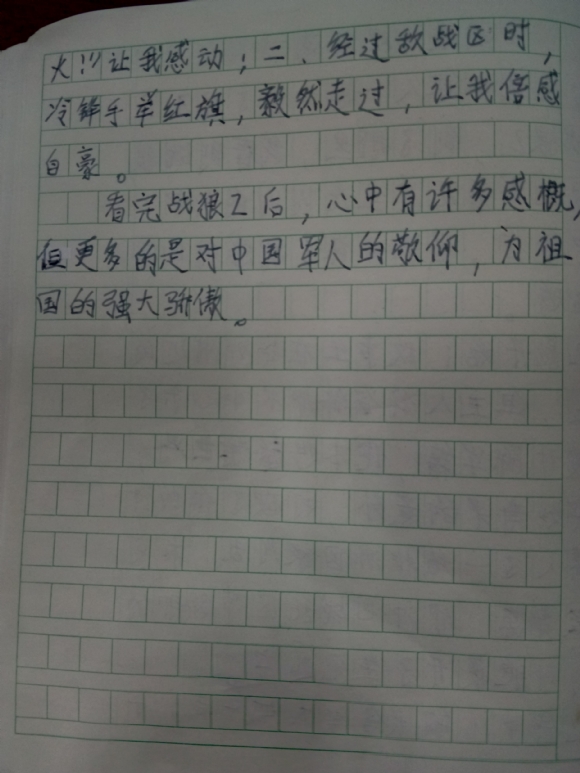 火!!让我感动；二、经过敌战区时，
冷锋手举红旗，毅然走过，让我倍感
自豪。
看完战狼2后，心中有许多感概，
但更多的是对中国军人的敬仰，为祖
国的强大骄傲。